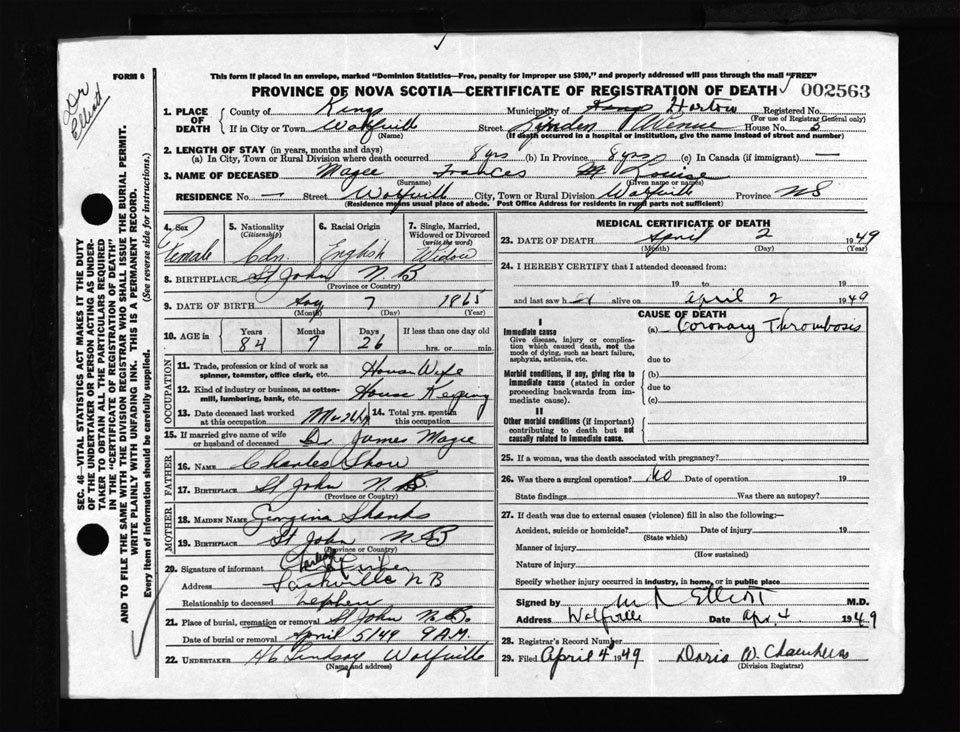 Dr Elliott
FORM 6
This form if placed in an envelope, marked "Dominion Statistics—Free, penalty for improper use $300," and properly addressed will pass through the mail "FREE"
PROVINCE OF NOVA SCOTIA—CERTIFICATE OF REGISTRATION OF DEATH 002563
1. PLACE OF DEATH County of Kings Municipality of Kings Horton Registered No.
(For use of Registrar General only)
If in City or Town Wolfville Street Linden Avenue House No. 3
(Name) (If death occurred in a hospital or institution, give the name instead of street and number)
2. LENGTH OF STAY (in years, months and days)
(a) In City, Town or Rural Division where death occurred 8 yrs (b) In Province 8 yrs (c) In Canada (if immigrant) —
3. NAME OF DECEASED Magee Frances M Louise
(Surname) (Given name or names)
RESIDENCE No. — Street Wolfville City, Town or Rural Division Wolfville Province NS
(Residence means usual place of abode. Post Office Address for residents in rural parts not sufficient)
4. Sex Female
5. Nationality (Citizenship) Cdn.
6. Racial Origin English
7. Single, Married, Widowed or Divorced (write the word) Widow
8. BIRTHPLACE St John N.B
(Province or Country)
9. DATE OF BIRTH 7 1865
(Month) (Day) (Year)
10. AGE in Years 84 Months 7 Days 26 If less than one day old hrs. or min.
OCCUPATION
11. Trade, profession or kind of work as spinner, teamster, office clerk, etc. House Wife
12. Kind of industry or business, as cotton-mill, lumbering, bank, etc. House Keeping
13. Date deceased last worked at this occupation 14. Total yrs. spent in this occupation
15. If married give name of wife or husband of deceased Dr James Magee
FATHER
16. NAME Charles
17. BIRTHPLACE St John N.B
(Province or Country)
MOTHER
18. MAIDEN NAME Georgina Shanks
19. BIRTHPLACE St John N.B
(Province or Country)
20. Signature of informant Fisher
Address Sackville N B
Relationship to deceased nephew
21. Place of burial, cremation or removal St John N.B.
Date of burial or removal April 5/49 9 A.M.
22. UNDERTAKER Lindsay Wolfville
(Name and address)
MEDICAL CERTIFICATE OF DEATH
23. DATE OF DEATH April 2 1949
(Month) (Day) (Year)
24. I HEREBY CERTIFY that I attended deceased from:
19 to 19
and last saw her alive on April 2 1949
CAUSE OF DEATH
I
Immediate cause
Give disease, injury or complication which caused death, not the mode of dying, such as heart failure, asphyxia, asthenia, etc.
(a) Coronary Thrombosis
due to
Morbid conditions, if any, giving rise to immediate cause (stated in order proceeding backwards from immediate cause).
(b)
due to
(c)
II
Other morbid conditions (if important) contributing to death but not causally related to immediate cause.
25. If a woman, was the death associated with pregnancy?
26. Was there a surgical operation? No Date of operation 19
State findings Was there an autopsy?
27. If death was due to external causes (violence) fill in also the following:—
Accident, suicide or homicide? Date of injury 19
(State which)
Manner of injury
(How sustained)
Nature of injury
Specify whether injury occurred in industry, in home, or in public place
Signed by Elliott M.D.
Address Wolfville Date Apr. 4 1949
28. Registrar's Record Number
29. Filed April 4 1949 Doris W. Chambers
(Division Registrar)
SEC. 46—VITAL STATISTICS ACT MAKES IT THE DUTY
OF THE UNDERTAKER OR PERSON ACTING AS UNDERTAKER TO OBTAIN ALL THE PARTICULARS REQUIRED
IN THE "CERTIFICATE OF REGISTRATION OF DEATH"
AND TO FILE THE SAME WITH THE DIVISION REGISTRAR WHO SHALL ISSUE THE BURIAL PERMIT.
WRITE PLAINLY WITH UNFADING INK. THIS IS A PERMANENT RECORD.
Every item of information should be carefully supplied. (See reverse side for instructions.)